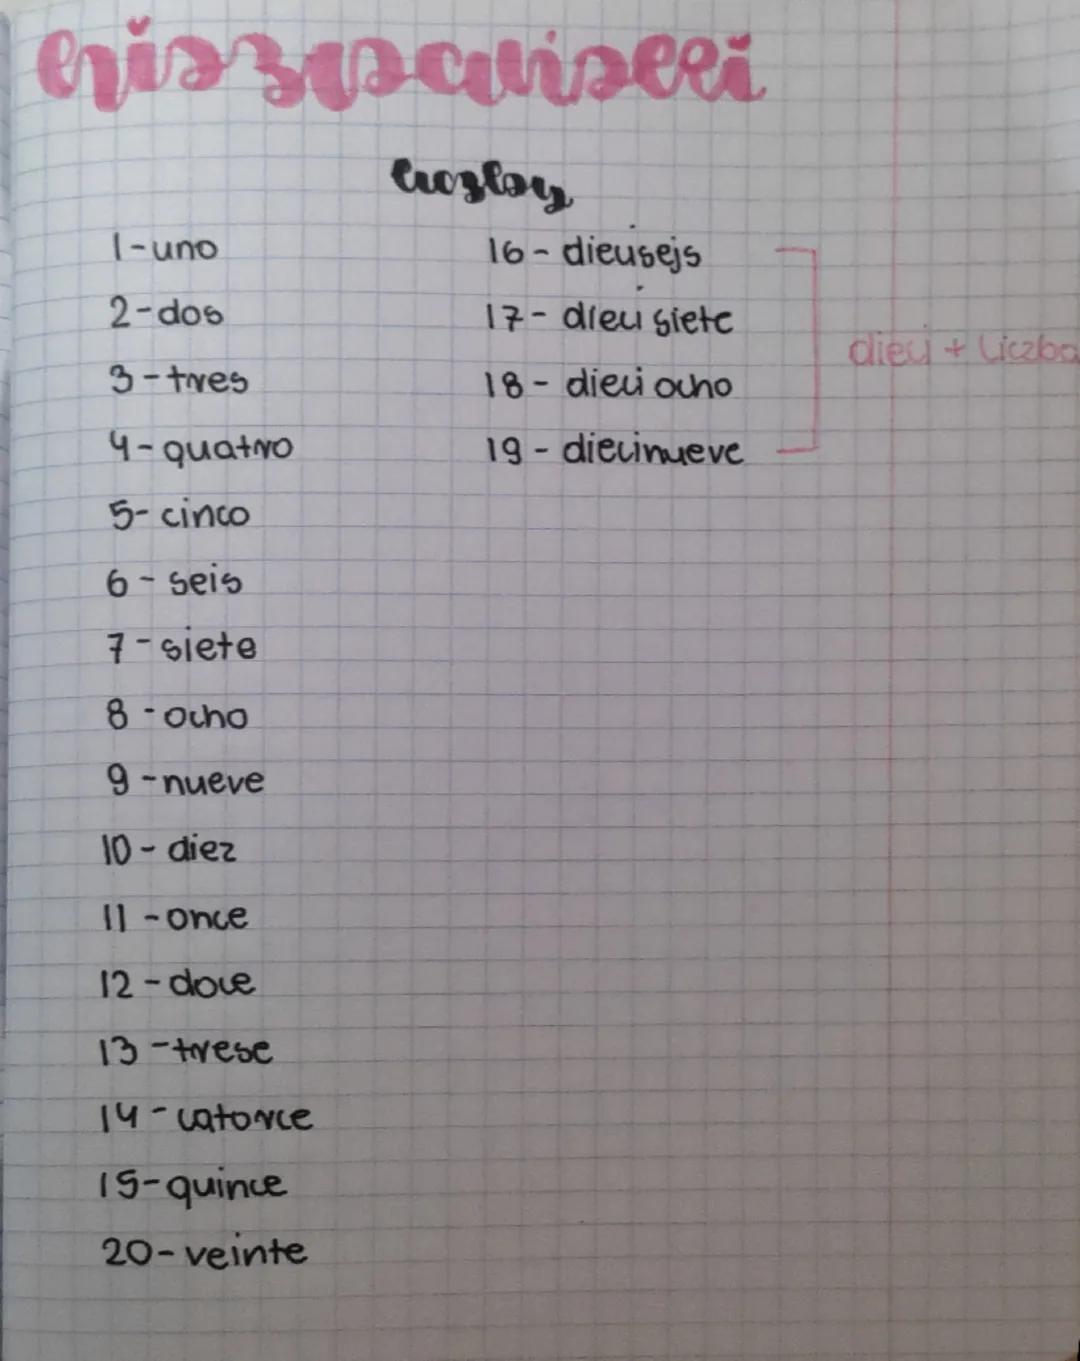 1-uno
2-dos
3-tres
4-quatro
5-cinco
6-seis
7-siete
8-ocho
9-nueve
10-diez
11-once
12-doce
13-trese
14-catorce
15-quince
20-veinte
16-diecisejs
17-dieci siete
18-dieci ocho
19-diecinueve
dieci + liczba